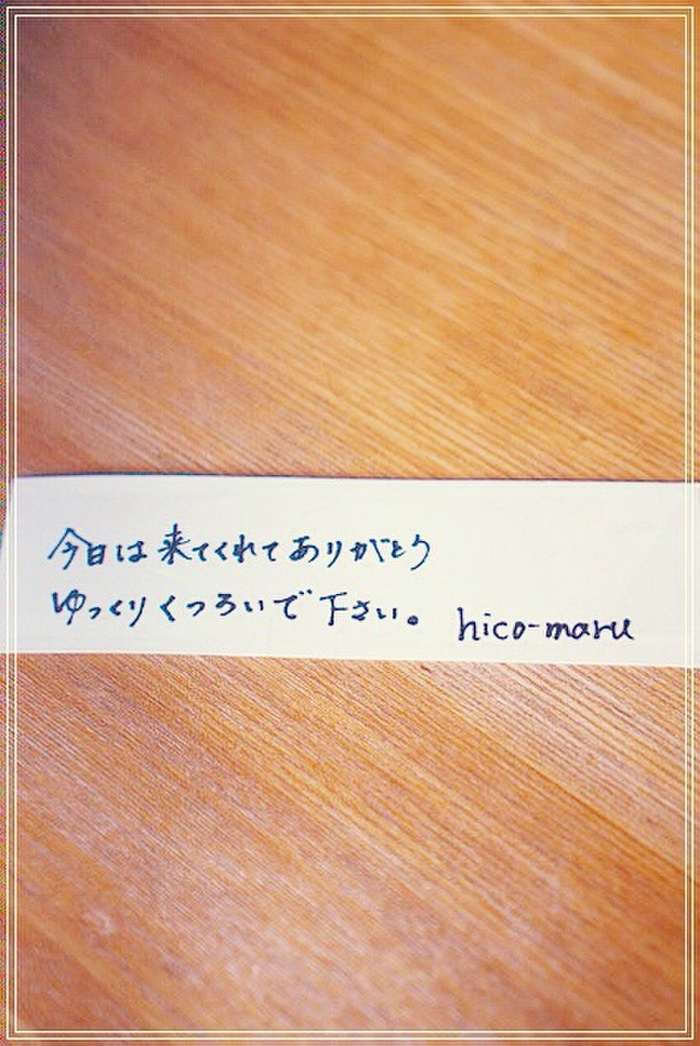 今日は来てくれてありがとう
ゆっくりくつろいで下さい。 hico-maru